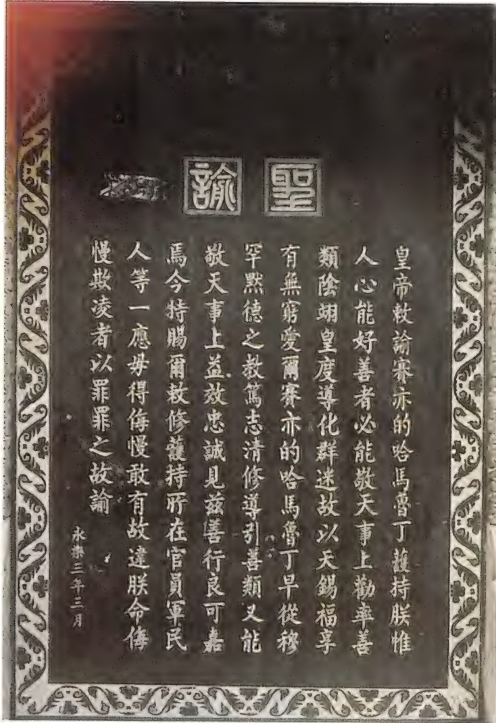 聖諭
皇帝敕諭賽亦的哈馬魯丁護持朕惟
人心能好善者必能敬天事上勸率善
類陰翊皇度導化群迷故以天錫福享
有無窮愛爾賽亦的哈馬魯丁早從穆
罕默德之教篤志清修導引善類又能
敬天事上益效忠誠見茲善行良可嘉
焉今持賜爾敕修護持所在官員軍民
人等一應毋得侮慢敢有故違朕命侮
慢欺凌者以罪罪之故諭
永樂三年三月